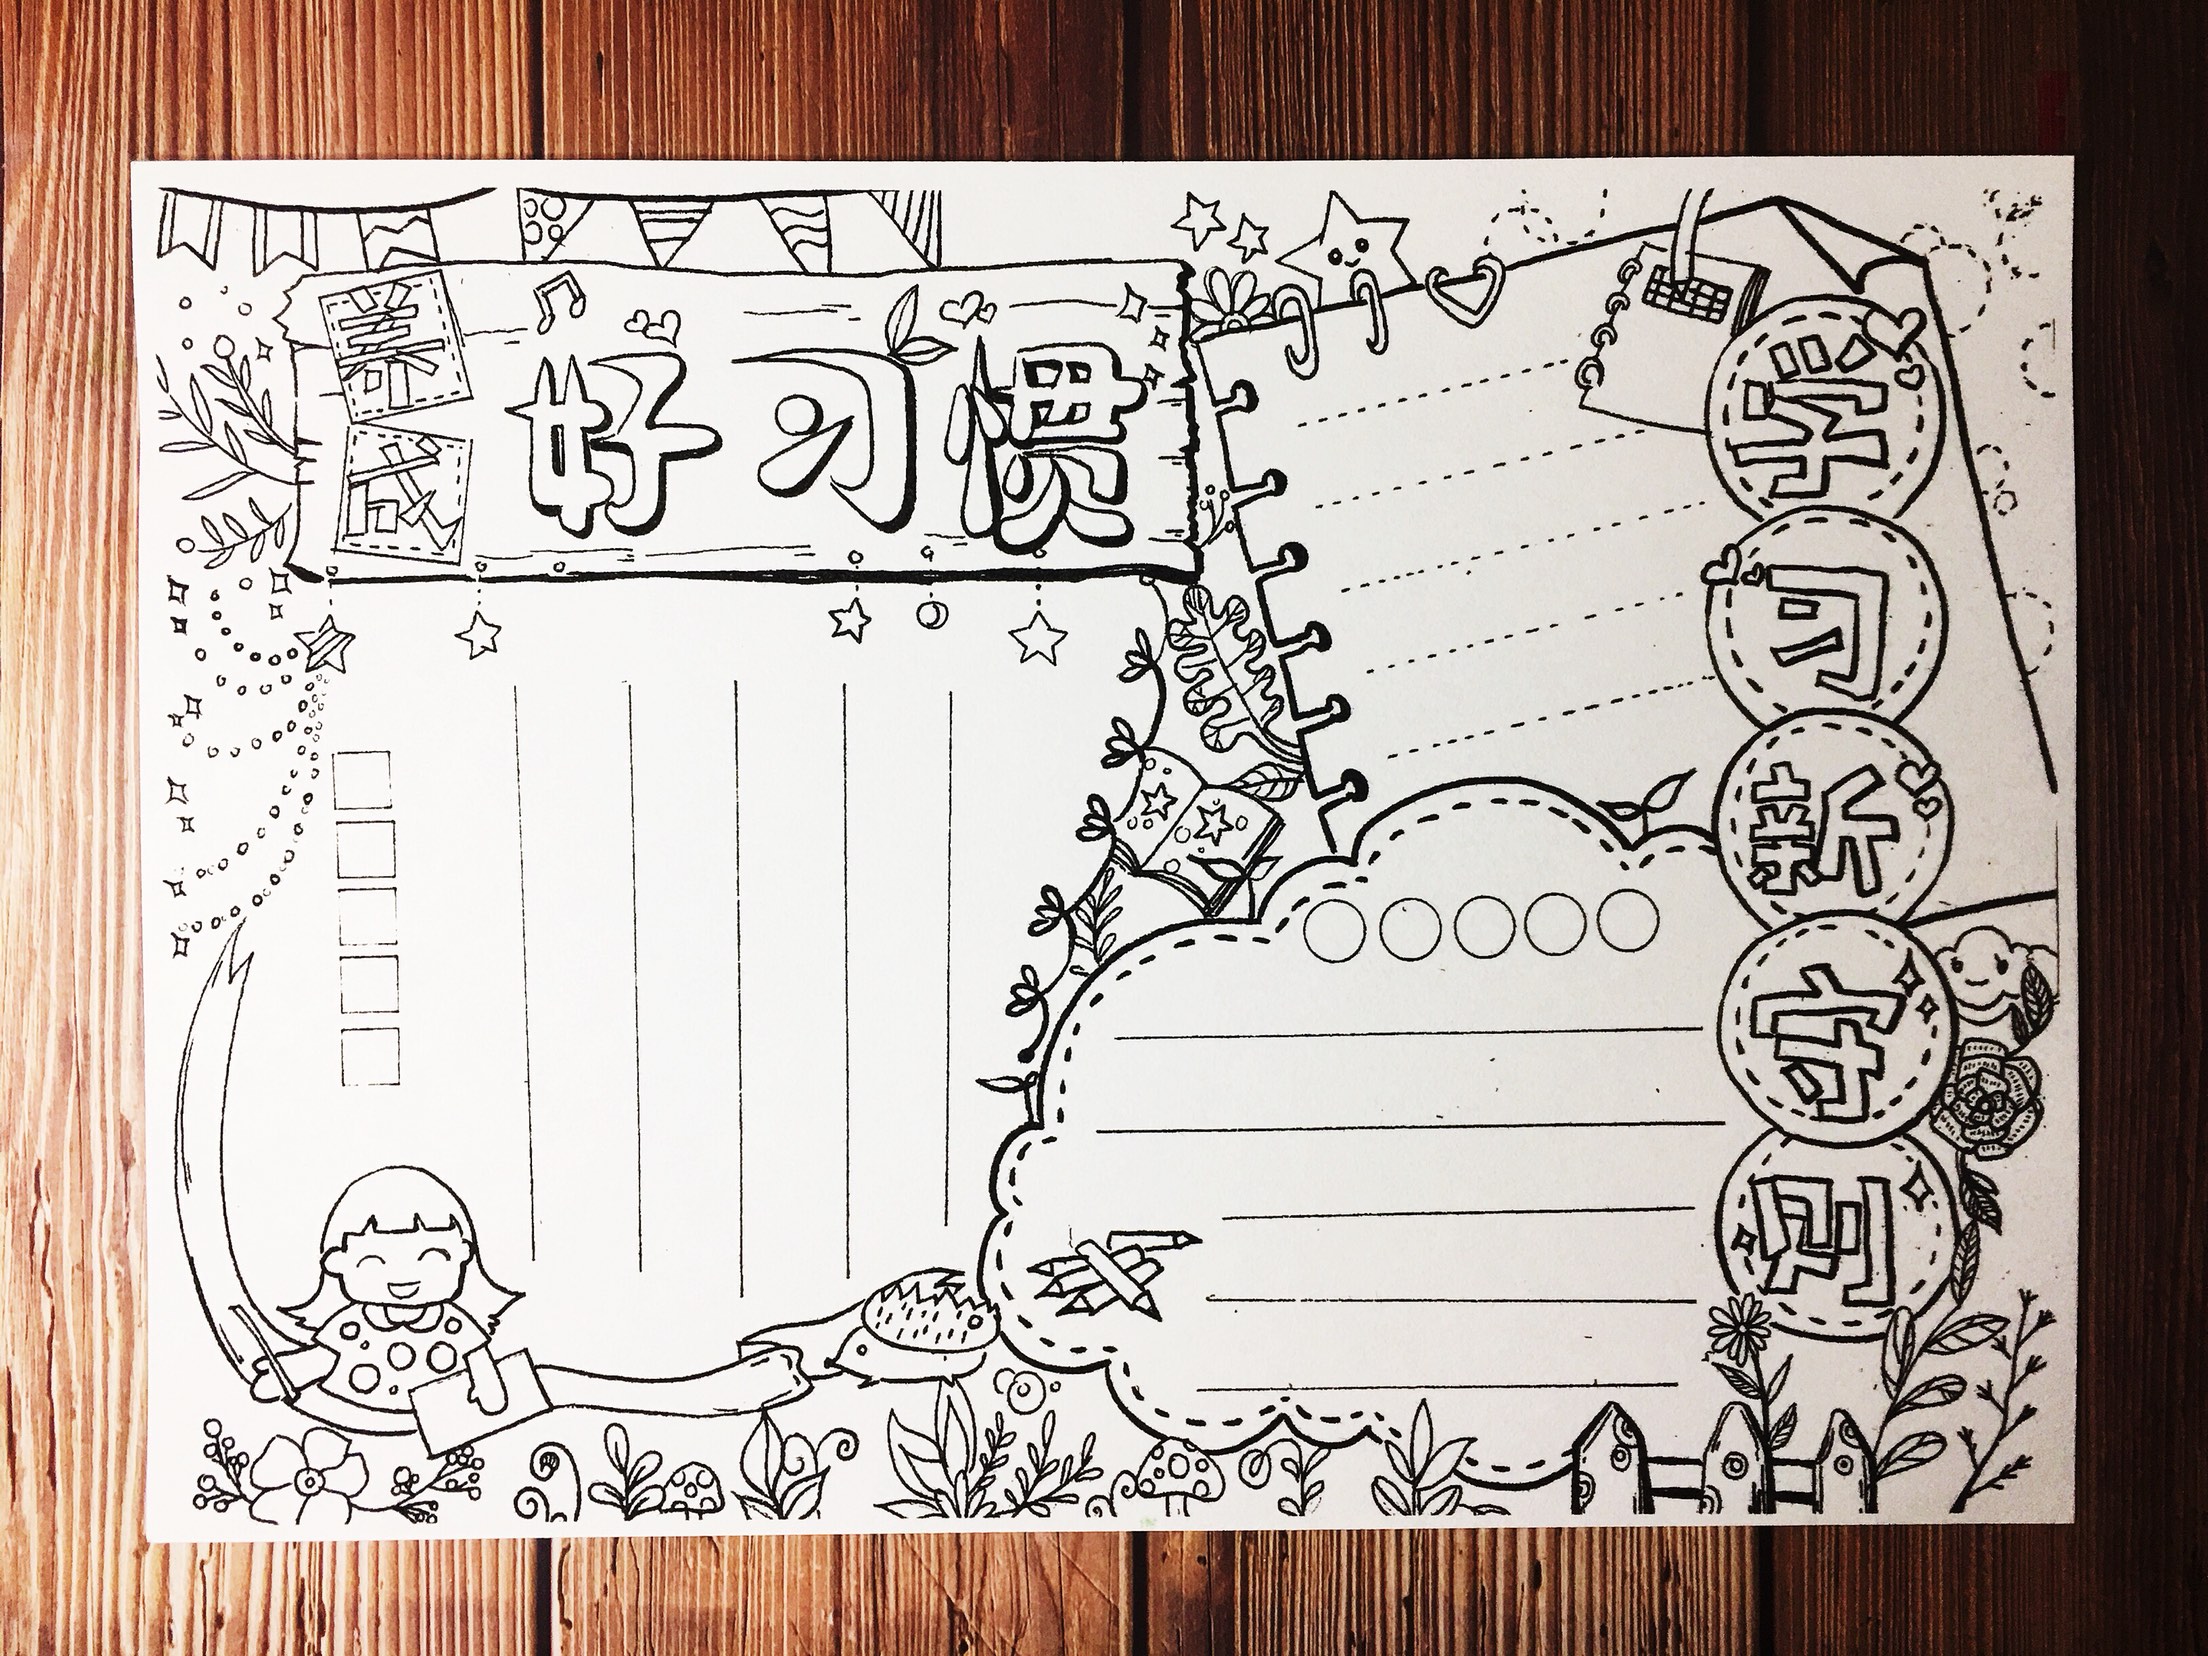 养成好习惯
学习新守则